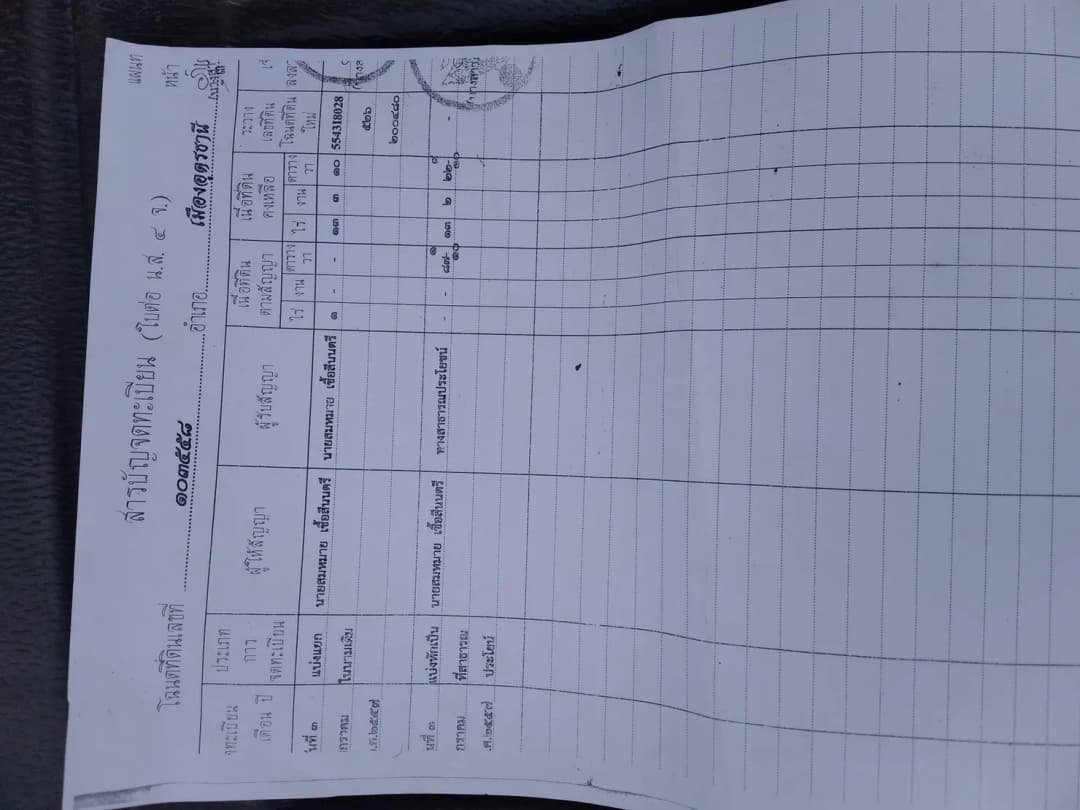 สารบัญจดทะเบียน (ใบต่อ น.ส. ๔ จ.)
แผ่นที่
หน้า
โฉนดที่ดินเลขที่ ๑๐๓๕๕๘ อำเภอ เมืองอุดรธานี
จดทะเบียน
เดือน ปี
ประเภท
การ
จดทะเบียน
ผู้ให้สัญญา
ผู้รับสัญญา
เนื้อที่ดิน
ตามสัญญา
ไร่ งาน ตาราง
วา
เนื้อที่ดิน
คงเหลือ
ไร่ งาน ตาราง
วา
ระวาง
เลขที่ดิน
โฉนดที่ดิน
ใหม่
วันที่ ๓ แบ่งแยก นายสมหมาย เชื้อสีนนตรี นายสมหมาย เชื้อสีนนตรี ๑ - - ๑๓ ๓ ๑๐ 5543I8028
มกราคม ในนามเดิม ๕๒๖
พ.ศ.๒๕๔๗ ๒๐๐๔๘๐
วันที่ ๓ แบ่งหักเป็น นายสมหมาย เชื้อสีนนตรี ทางสาธารณประโยชน์ - - ๘๗ ๑/๑๐ ๑๓ ๒ ๒๒ ๙/๑๐ -
มกราคม ที่สาธารณ
พ.ศ.๒๕๔๗ ประโยชน์